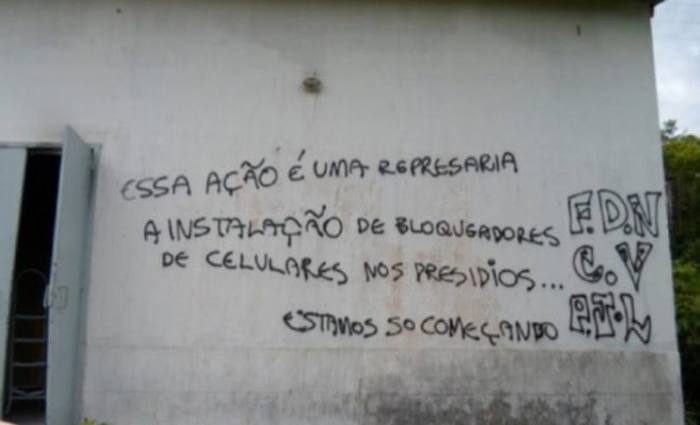 ESSA AÇÃO É UMA REPRESARIA
A INSTALAÇÃO DE BLOQUEADORES
DE CELULARES NOS PRESIDIOS...
ESTAMOS SO COMEÇANDO
F.D.N
C.V
P.J.L